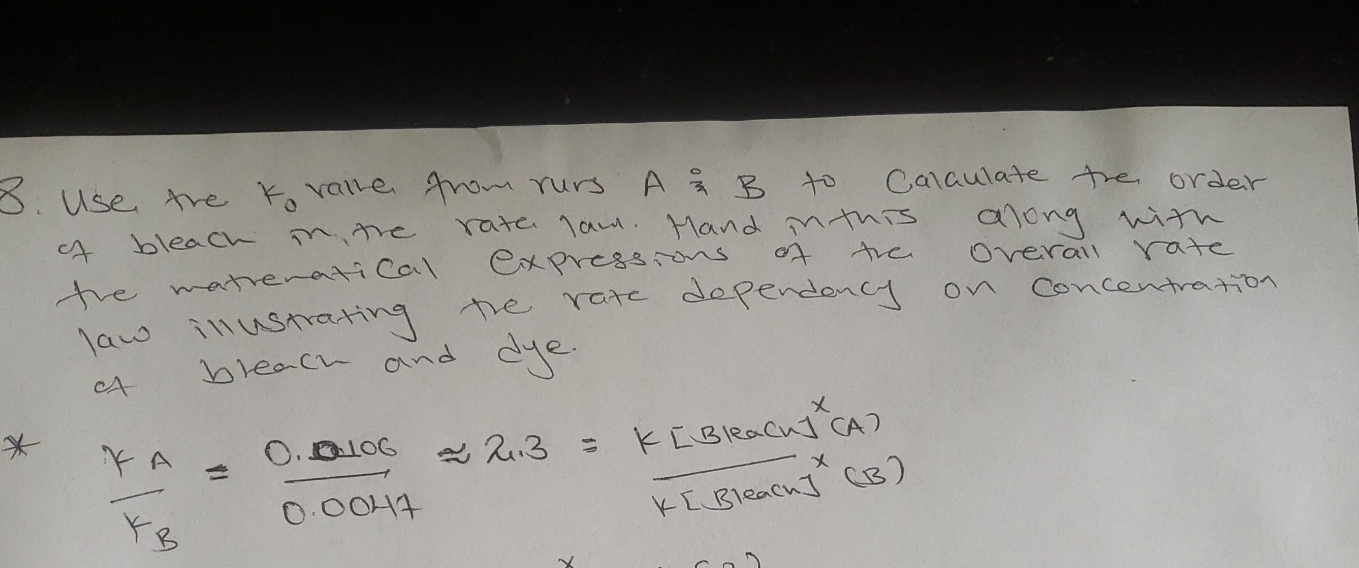 8. Use the K₀ value from runs A & B to Calculate the order
of bleach in the rate law. Hand in this along with
the matrematical expressions of the overall rate
law illustrating the rate dependency on concentration
of bleach and dye.
* KA/KB = 0.0106/0.0047 ≈ 2.3 = K[Bleach]^x (A)/K[Bleach]^x (B)